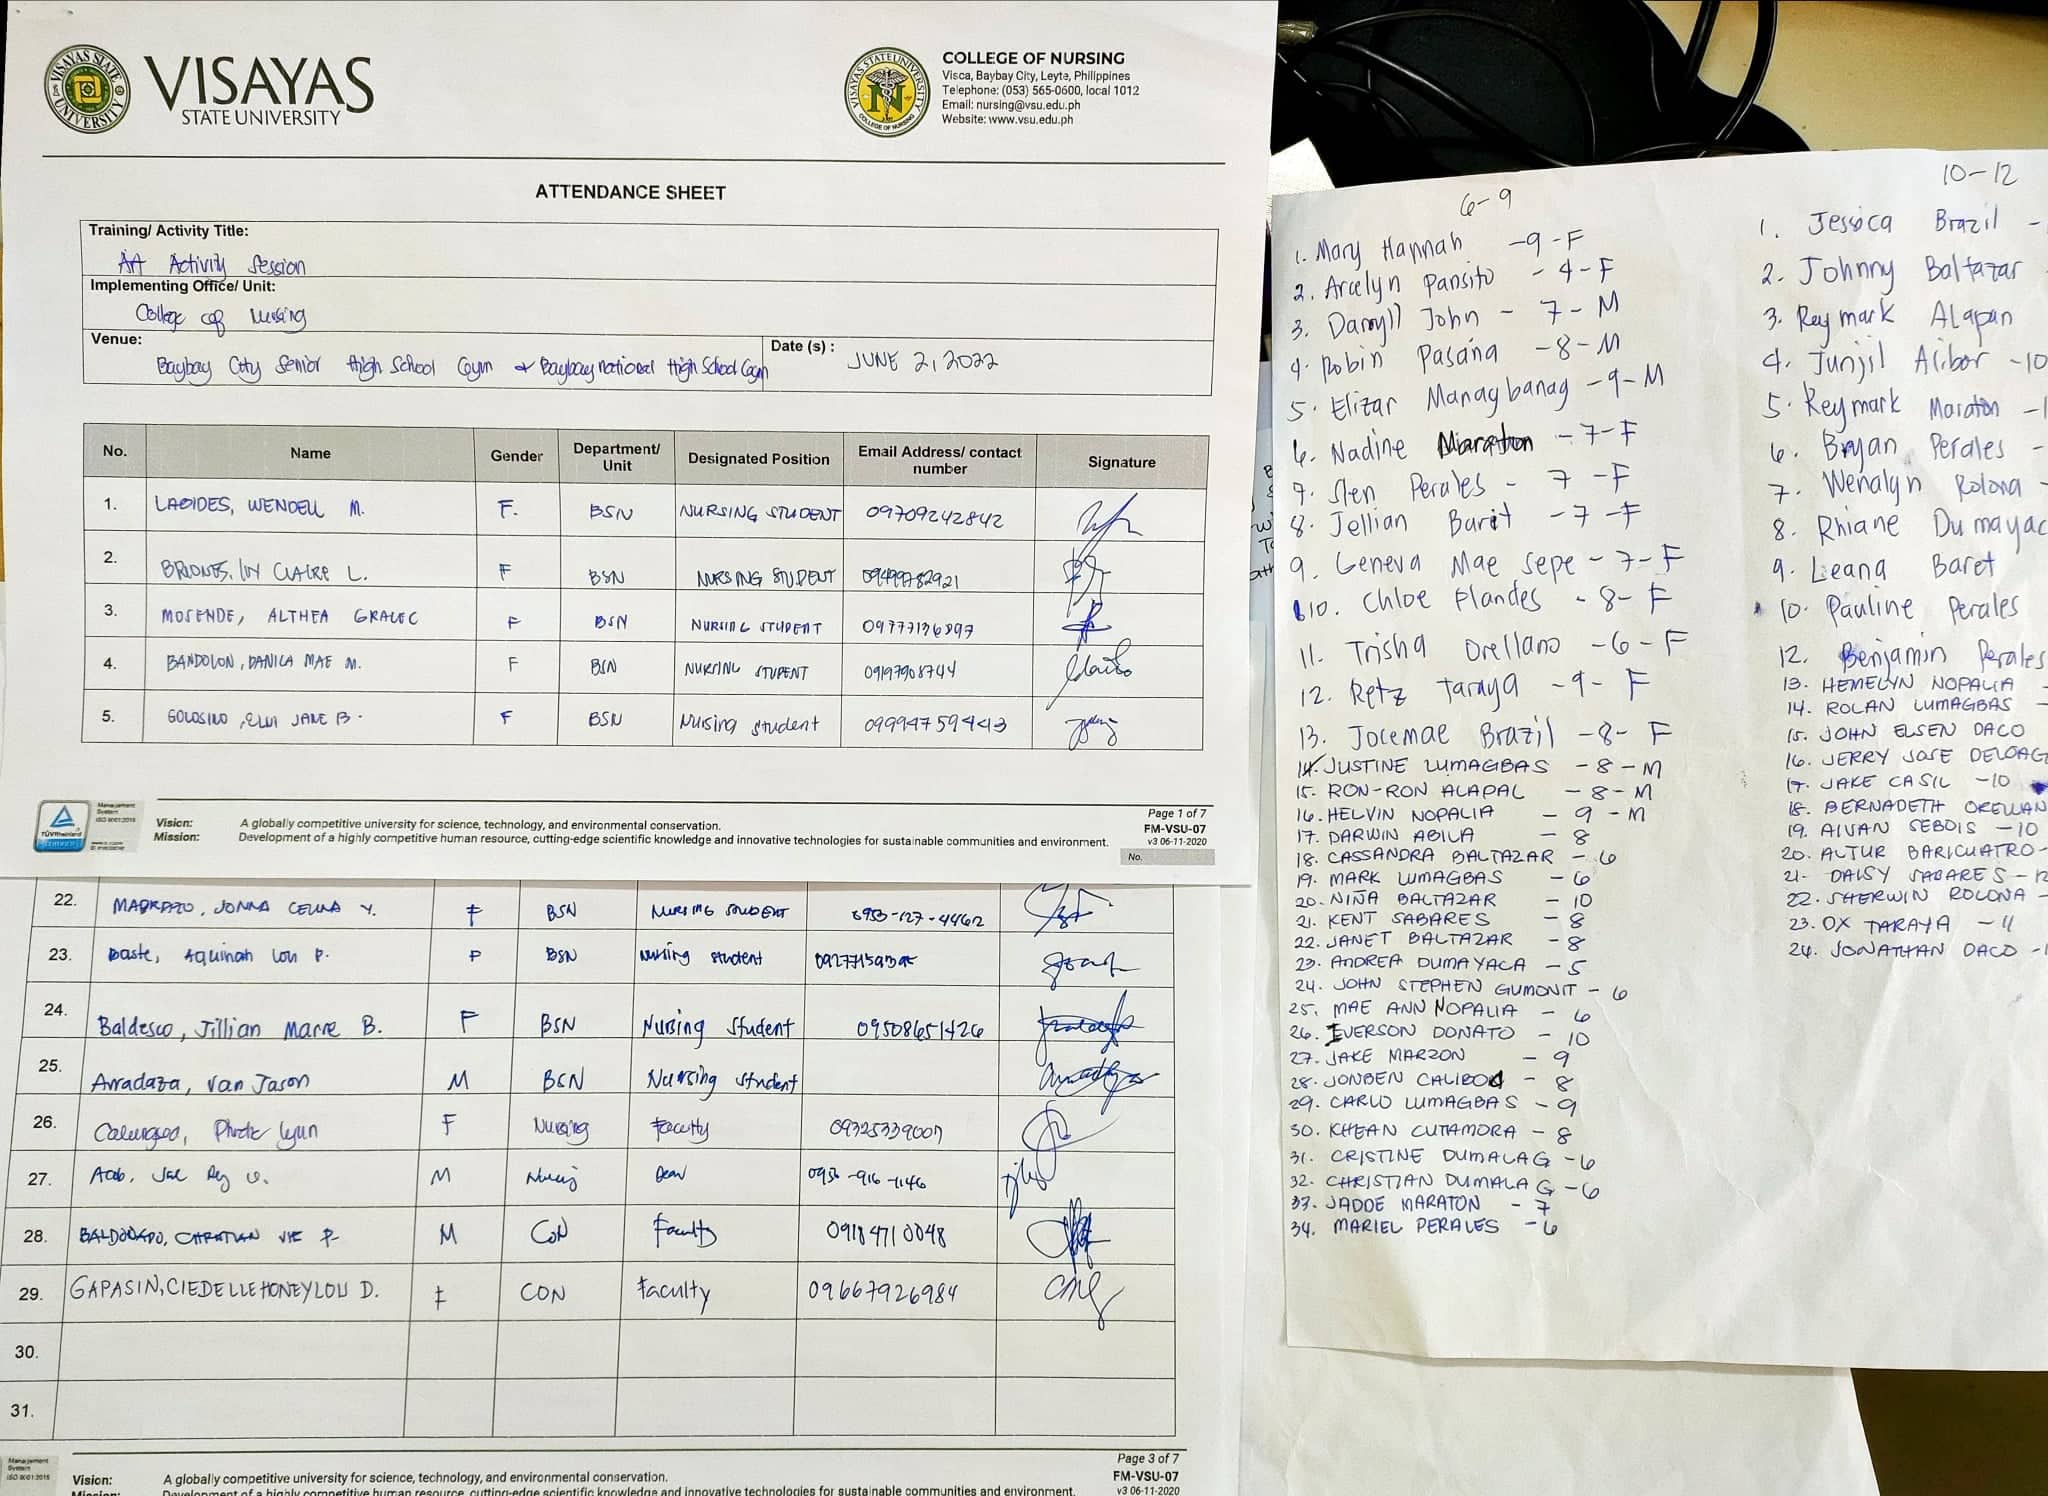 VISAYAS STATE UNIVERSITY
VISAYAS
STATE UNIVERSITY
VISAYAS STATE UNIVERSITY
N
COLLEGE OF NURSING
COLLEGE OF NURSING
Visca, Baybay City, Leyte, Philippines
Telephone: (053) 565-0600, local 1012
Email: nursing@vsu.edu.ph
Website: www.vsu.edu.ph
ATTENDANCE SHEET
Training/ Activity Title:
AA Activity Session
Implementing Office/ Unit:
College of Nursing
Venue:
Baybay City Senior High School Gym & Baybay national High School Gym
Date (s) : JUNE 2, 2022
No. Name Gender Department/ Unit Designated Position Email Address/ contact number Signature
1. LABIDES, WENDELL M. F. BSN NURSING STUDENT 09709242842
2. BRIONES, IVY CLAIRE L. F BSN NURSING STUDENT 09499782921
3. MOSENDE, ALTHEA F BSN NURSING STUDENT
4. BANDOLON, DANICA MAE M. F BSN NURSING STUDENT 09197908744
5. JANE B. F BSN Nursing student 09994759443
TÜVRheinland
CERTIFIED
Management
System
ISO 9001:2015
Vision: A globally competitive university for science, technology, and environmental conservation.
Mission: Development of a highly competitive human resource, cutting-edge scientific knowledge and innovative technologies for sustainable communities and environment.
Page 1 of 7
FM-VSU-07
v3 06-11-2020
No.
22. JONNA CELINA Y. F BSN NURSING STUDENT 0953-127-4462
23. Daste, Aquinah Lou P. F BSN Nursing student
24. Baldesco, Jillian Marre B. F BSN Nursing student 09508651426
25. Arradaza, Van Jason M BSN Nursing student
26. F Nursing Faculty 09325339007
27. M Nursing Dean
28. BALDONADO, CHRISTIAN VIE P. M CON Faculty 09184710048
29. GAPASIN, CIEDELLE HONEYLOU D. F CON Faculty 09667926984
30.
31.
Management
System
ISO 9001:2015
Vision: A globally competitive university for science, technology, and environmental conservation.
Mission: Development of a highly competitive human resource, cutting-edge scientific knowledge and innovative technologies for sustainable communities and environment.
Page 3 of 7
FM-VSU-07
v3 06-11-2020
6-9
1. Mary Hannah -9-F
2. Arcelyn Pansito - 4-F
3. Darryll John - 7 - M
4. Robin Pasana -8-M
5. Elizar Managbanag -9-M
6. Nadine Maraton -7-F
7. Slen Perales - 7 -F
8. Jellian Barit -7 -F
9. Geneva Mae Sepe - 7-F
10. Chloe Flandes - 8- F
11. Trisha Orellano -6-F
12. Retz Taraya -9- F
13. Jocemae Brazil -8- F
14. JUSTINE LUMAGBAS -8-M
15. RON-RON ALAPAL -8-M
16. HELVIN NOPALIA - 9 -M
17. DARWIN ABILA - 8
18. CASSANDRA BALTAZAR - 6
19. MARK LUMAGBAS - 6
20. NIÑA BALTAZAR - 10
21. KENT SABARES - 8
22. JANET BALTAZAR - 8
23. ANDREA DUMAYACA - 5
24. JOHN STEPHEN GUMONIT - 6
25. MAE ANN NOPALIA - 6
26. EVERSON DONATO - 10
27. JAKE MARZON - 9
28. JONBEN - 8
29. CARLO LUMAGBAS - 9
30. KHEAN CUTAMORA - 8
31. CRISTINE DUMALAG -6
32. CHRISTIAN DUMALAG -6
33. JADDE MARATON - 7
34. MARIEL PERALES -6
10-12
1. Jessica Brazil -
2. Johnny Baltazar
3. Reymark Alapan
4. Junjil Alibor -10
5. Reymark Maraton -1
6. Bryan Perales -
7. Wenalyn Rolona -
8. Rhiane Dumayac
9. Leana Baret
10. Pauline Perales
12. Benjamin Perales
13. HEMELYN NOPALIA -
14. ROLAN LUMAGBAS -
15. JOHN ELSEN DACO
16. JERRY JOSE DELOAG
17. JAKE CASIL -10
18. BERNADETH ORELLAN
19. AIVAN SEBOIS -10
20. ALTUR BARICUATRO-
21. DAISY SABARES -12
22. SHERWIN ROLONA -
23. OX TARAYA -11
24. JONATHAN DACO -1